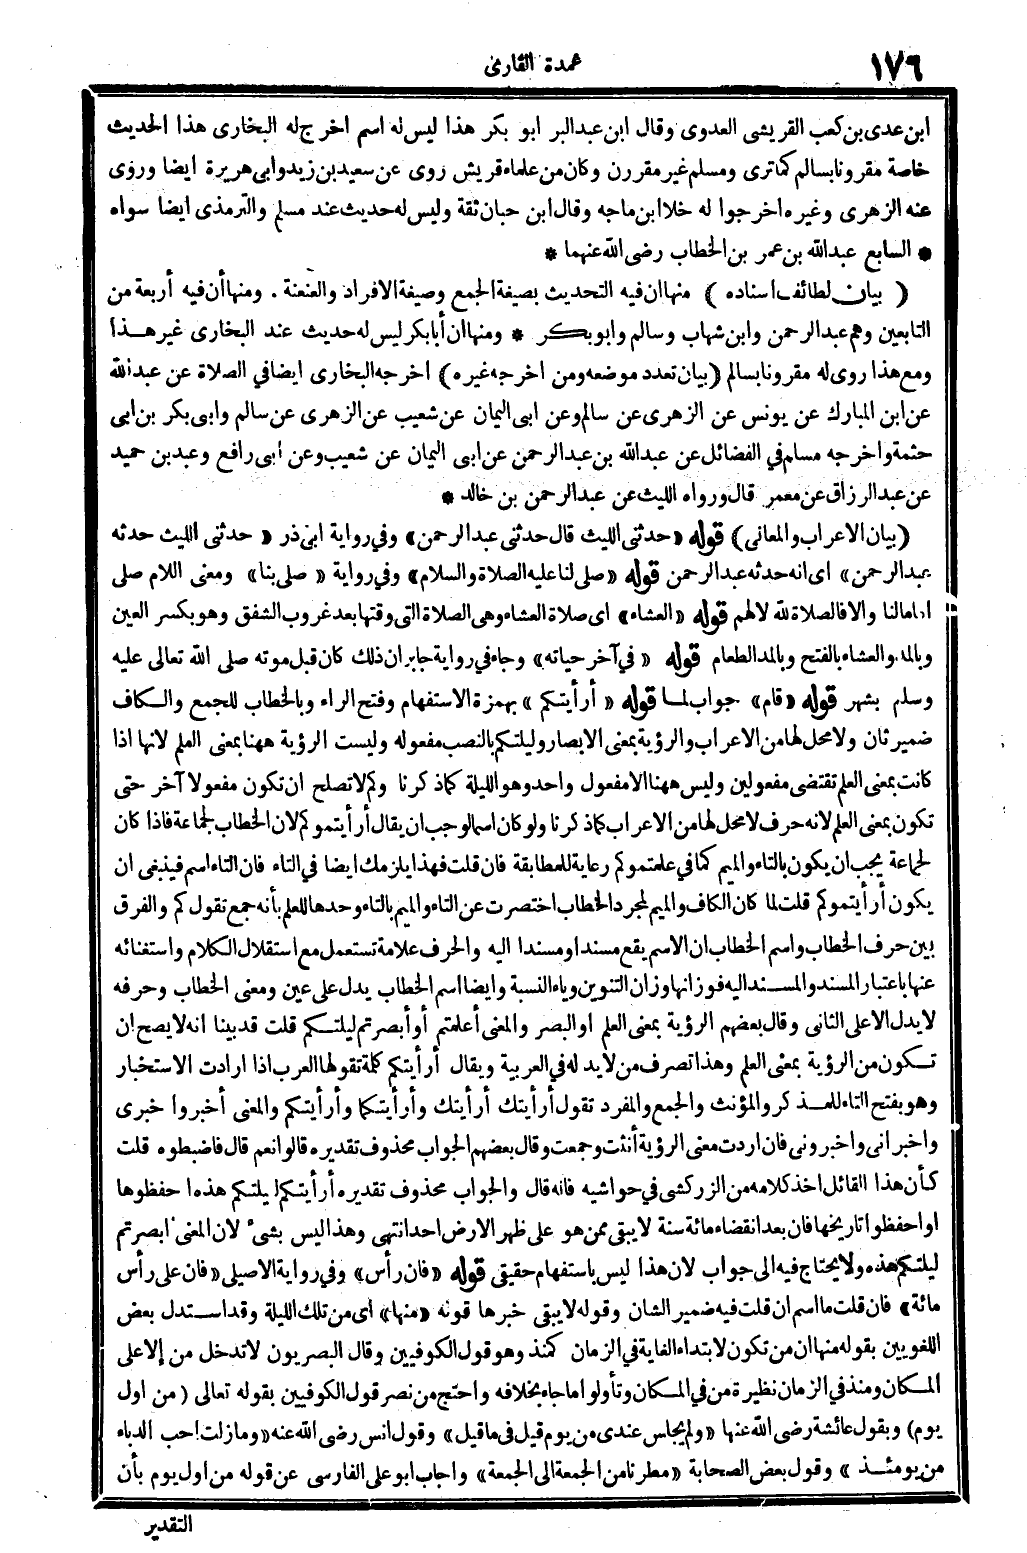 ١٧٦
عمدة القارئ
ابن عدى بن كعب القريشى العدوى وقال ابن عبد البر ابو بكر هذا ليس له اسم اخرج له البخارى هذا الحديث
خاصة مقرونا بسالم كما ترى ومسلم غير مقرون وكان من علماء قريش روى عن سعيد بن زيد وابى هريرة ايضا وروى
عنه الزهرى وغيره اخرجوا له خلا ابن ماجه وقال ابن حبان ثقة وليس له حديث عند مسلم والترمذى ايضا سواه
* السابع عبد الله بن عمر بن الخطاب رضى الله عنهما *
( بيان لطائف اسناده ) منها ان فيه التحديث بصيغة الجمع وصيغة الافراد والعنعنة . ومنها أن فيه أربعة من
التابعين وهم عبد الرحمن وابن شهاب وسالم وابو بكر * ومنها ان أبا بكر ليس له حديث عند البخارى غير هذا
ومع هذا روى له مقرونا بسالم (بيان تعدد موضعه ومن اخرجه غيره) اخرجه البخارى ايضا في الصلاة عن عبد الله
عن ابن المبارك عن يونس عن الزهرى عن سالم وعن ابى اليمان عن شعيب عن الزهرى عن سالم وابى بكر بن ابى
حثمة واخرجه مسلم في الفضائل عن عبد الله بن عبد الرحمن عن ابى اليمان عن شعيب وعن ابى رافع وعبد بن حميد
عن عبد الرزاق عن معمر قال ورواه الليث عن عبد الرحمن بن خالد *
(بيان الاعراب والمعانى) قوله «حدثنى الليث قال حدثنى عبد الرحمن» وفي رواية ابى ذر « حدثنى الليث حدثه
عبد الرحمن» اى انه حدثه عبد الرحمن قوله «صلى لنا عليه الصلاة والسلام» وفي رواية « صلى بنا» ومعنى اللام صلى
اماما لنا والا فالصلاة لله لا لهم قوله «العشاء» اى صلاة العشاء وهى الصلاة التى وقتها بعد غروب الشفق وهو بكسر العين
وبالمد والعشاء بالفتح وبالمد الطعام قوله « في آخر حياته» وجاء في رواية جابر ان ذلك كان قبل موته صلى الله تعالى عليه
وسلم بشهر قوله «قام» جواب لما قوله « أرأيتكم » بهمزة الاستفهام وفتح الراء وبالخطاب للجمع والكاف
ضمير ثان ولا محل لها من الاعراب والرؤية بمعنى الابصار وليلتكم بالنصب مفعوله وليست الرؤية ههنا بمعنى العلم لانها اذا
كانت بمعنى العلم تقتضى مفعولين وليس ههنا الا مفعول واحد وهو الليلة كما ذكرنا وكم لا تصلح ان تكون مفعولا آخر حتى
تكون بمعنى العلم لانه حرف لا محل لها من الاعراب كما ذكرنا ولو كان اسما لوجب ان يقال أرأيتموكم لان الخطاب لجماعة فاذا كان
لجماعة يجب ان يكون بالتاء والميم كما في علمتموكم رعاية للمطابقة فان قلت فهذا يلزمك ايضا في التاء فان التاء اسم فينبغى ان
يكون أرأيتموكم قلت لما كان الكاف والميم لمجرد الخطاب اختصرت عن التاء والميم بالتاء وحدها للعلم بأنه جمع تقول كم والفرق
بين حرف الخطاب واسم الخطاب ان الاسم يقع مسندا ومسندا اليه والحرف علامة تستعمل مع استقلال الكلام واستغنائه
عنها باعتبار المسند والمسند اليه فوزانها وزان التنوين وياء النسبة وايضا اسم الخطاب يدل على عين ومعنى الخطاب وحرفه
لا يدل الا على الثانى وقال بعضهم الرؤية بمعنى العلم او البصر والمعنى أعلمتم أو أبصرتم ليلتكم قلت قد بينا انه لا يصح ان
تكون من الرؤية بمعنى العلم وهذا تصرف من لا يد له في العربية ويقال أرأيتكم كلمة تقولها العرب اذا ارادت الاستخبار
وهو بفتح التاء للمذكر والمؤنث والجمع والمفرد تقول أرأيتك أرأيتك وأرأيتكما وأرأيتكم والمعنى أخبروا خبرى
واخبرانى واخبرونى فان اردت معنى الرؤية أنثت وجمعت وقال بعضهم الجواب محذوف تقديره قالوا نعم قال فاضبطوه قلت
كأن هذا القائل اخذ كلامه من الزركشى في حواشيه فانه قال والجواب محذوف تقديره أرأيتكم ليلتكم هذه احفظوها
او احفظوا تاريخها فان بعد انقضاء مائة سنة لا يبقى ممن هو على ظهر الارض احد انتهى وهذا ليس بشىء لان المعنى ابصرتم
ليلتكم هذه ولا يحتاج فيه الى جواب لان هذا ليس باستفهام حقيقى قوله «فان رأس» وفي رواية الاصيلى «فان على رأس
مائة» فان قلت ما اسم ان قلت فيه ضمير الشان وقوله لا يبقى خبرها قوله «منها» اى من تلك الليلة وقد استدل بعض
اللغويين بقوله منها ان من تكون لابتداء الغاية في الزمان كمنذ وهو قول الكوفيين وقال البصريون لا تدخل من إلا على
المكان ومنذ في الزمان نظيرة من في المكان وتأولوا ما جاء بخلافه واحتج من نصر قول الكوفيين بقوله تعالى ( من اول
يوم) وبقول عائشة رضى الله عنها «ولم يجلس عندى من يوم قيل في ما قيل» وقول انس رضى الله عنه «وما زلت احب الدباء
من يومئذ » وقول بعض الصحابة «مطرنا من الجمعة الى الجمعة» واجاب ابو على الفارسى عن قوله من اول يوم بأن
التقدير